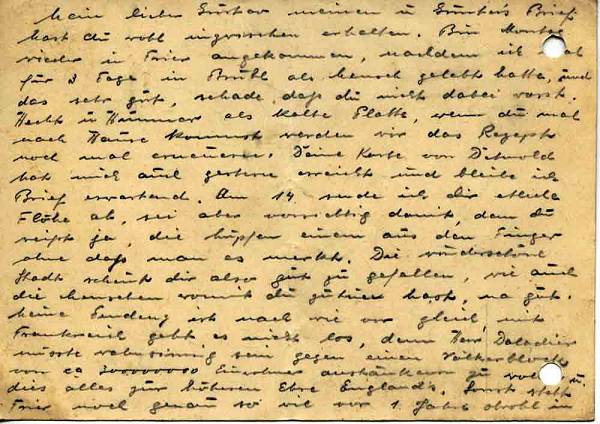 Mein lieber Gustav meinen u Günter's Brief
hast du wohl inzwischen erhalten. Bin Montag
wieder in Trier angekommen, nachdem ich mal
für 3 Tage in Brühl als Mensch gelebt hatte, und
das sehr gut, schade, daß du nicht dabei warst.
Hecht u Hummer als kalte Platte, wenn du mal
nach Hause kommst werden wir das Rezept
noch mal erneuern. Deine Karte von Detmold
hat mich auch gestern erreicht und bleibe ich
Brief erwartend. Am 14. sende ich dir etliche
Flöhe ab, sei aber vorsichtig damit, denn du
weißt ja, die hüpfen einem aus den Finger
ohne daß man es merkt. Die wunderschöne
Stadt scheint dir also gut zu gefallen, wie auch
die Menschen womit du zu tun hast, na gut.
Meine Meinung ist nach wie vor gleich, mit
Frankreich geht es nicht los, denn Herr Daladier
müsste wahnsinnig sein gegen einen Völkerblock
von ca 300000000 Einwohner zu
dies alles zur höheren Ehre England's. Sonst steht
Trier noch genau so wie vor 1 Jahre